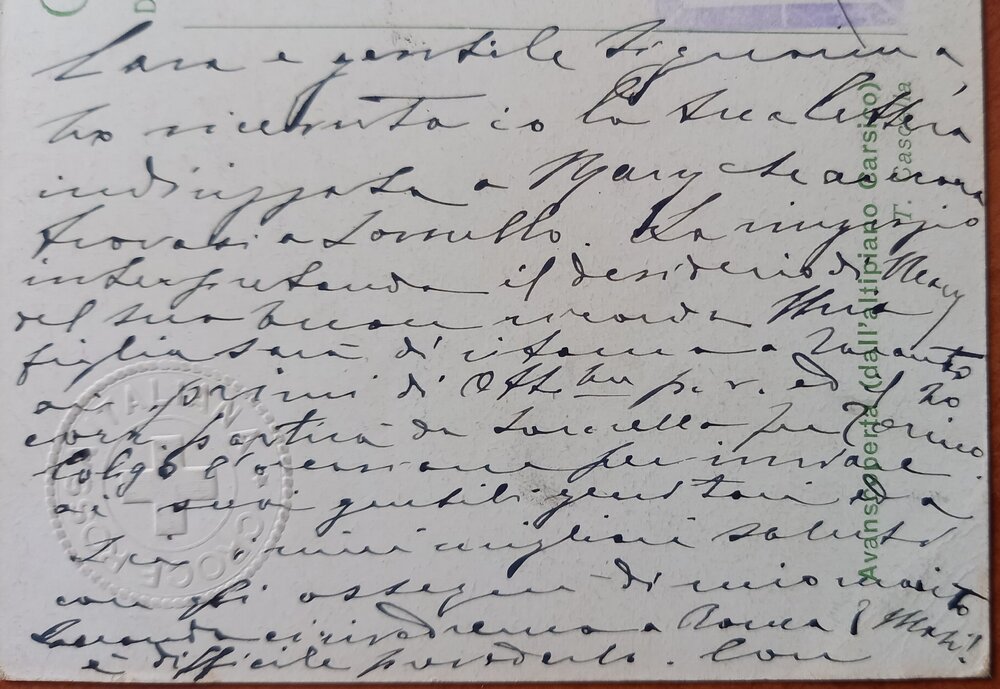 Cara e gentile Signorina,
ho ricevuta io la sua lettera
indirizzata a Mary che ancora
trovasi a Sorrello. La ringrazio
interpretando il desiderio di Mary
del suo buon ricordo. Mia
figlia sarà di ritorno a Taranto
ai primi di Ottbre p.v. ed il 20
corr partirà da per Torino.
Colgo l'occasione per inviare
ai suoi gentili genitori ed a
Lei i miei migliori saluti
con gli ossequi di mio marito
Quando ci rivedremo a Roma? Mah!
è difficile prevederlo. Con
Avanscoperta (dall'altipiano Carsico)
T. Cascella
CROCE ROSSA ITALIANA